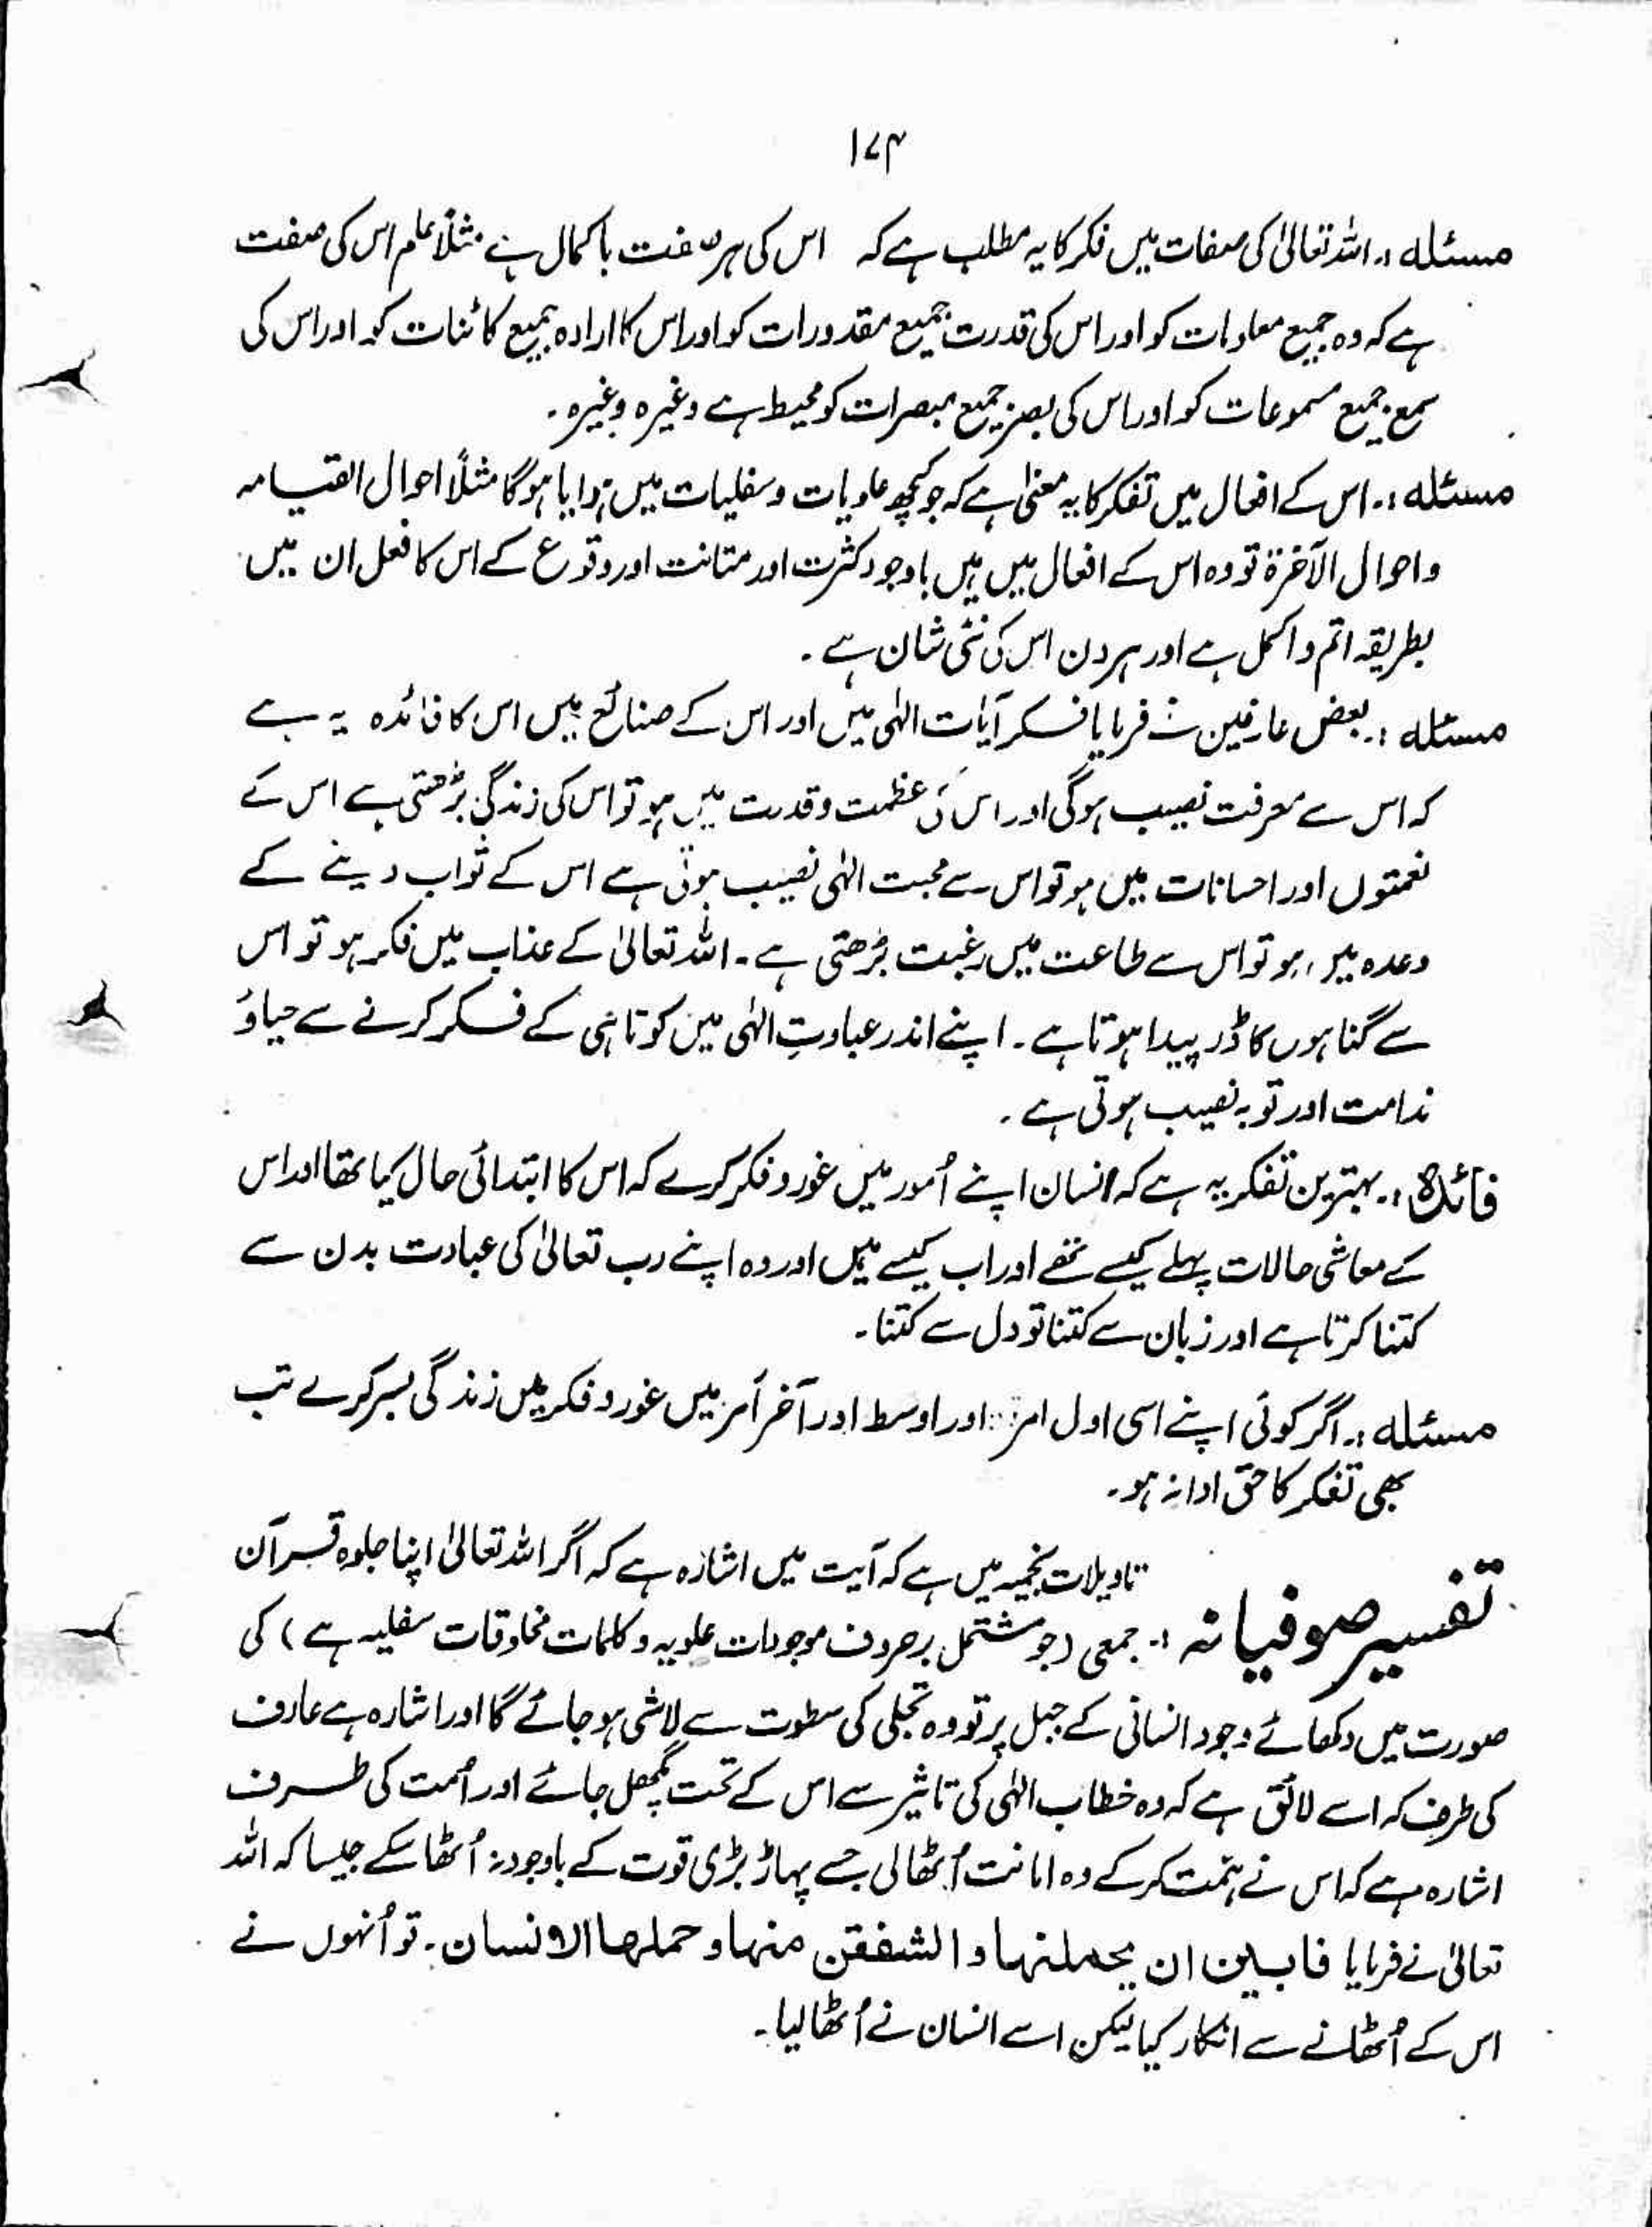 ۱۷۴
مسئلہ :۔ اللہ تعالیٰ کی صفات میں فکر کا یہ مطلب ہے کہ اس کی ہر صفت باکمال ہے مثلاً علم اس کی صفت
ہے کہ وہ جمیع معلومات کو اور اس کی قدرت جمیع مقدورات کو اور اس کا ارادہ جمیع کائنات کو اور اس کی
سمع جمیع مسموعات کو اور اس کی بصر جمیع مبصرات کو محیط ہے وغیرہ وغیرہ ۔
مسئلہ :۔ اس کے افعال میں تفکر کا یہ معنیٰ ہے کہ جو کچھ علویات و سفلیات میں ہوا یا ہو گا مثلاً احوال القیامہ
و احوال الآخرۃ تو وہ اس کے افعال میں ہیں باوجود کثرت اور متانت اور وقوع کے اس کا فعل ان میں
بطریقہ اتم و اکمل ہے اور ہر دن اس کی نئی شان ہے ۔
مسئلہ :۔ بعض عارفین نے فرمایا فکر آیات الٰہی میں اور اس کے صنائع میں اس کا فائدہ یہ ہے
کہ اس سے معرفت نصیب ہو گی اور اس کی عظمت و قدرت میں ہو تو اس کی زندگی بڑھتی ہے اس کے
نعمتوں اور احسانات میں ہو تو اس سے محبت الٰہی نصیب ہوتی ہے اس کے ثواب دینے کے
وعدہ میں ہو تو اس سے طاعت میں رغبت بڑھتی ہے ۔ اللہ تعالیٰ کے عذاب میں فکر ہو تو اس
سے گناہوں کا ڈر پیدا ہوتا ہے ۔ اپنے اندر عبادتِ الٰہی میں کوتاہی کے فکر کرنے سے حیا و
ندامت اور توبہ نصیب ہوتی ہے ۔
فائدہ :۔ بہترین تفکر یہ ہے کہ انسان اپنے اُمور میں غور و فکر کرے کہ اس کا ابتدائی حال کیا تھا اور اس
کے معاشی حالات پہلے کیسے تھے اور اب کیسے ہیں اور وہ اپنے رب تعالیٰ کی عبادت بدن سے
کتنا کرتا ہے اور زبان سے کتنا تو دل سے کتنا ۔
مسئلہ :۔ اگر کوئی اپنے اسی اول امر اور اوسط اور آخر امر میں غور و فکر میں زندگی بسر کرے تب
بھی تفکر کا حق ادا نہ ہو ۔
تاویلات نجمیہ میں ہے کہ آیت میں اشارہ ہے کہ اگر اللہ تعالیٰ اپنا جلوہ قرآن
تفسیر صوفیانہ :۔ جمعی (جو مشتمل بر حروف موجودات علویہ و کلمات مخلوقات سفلیہ ہے) کی
صورت میں دکھائے وجود انسانی کے جبل پر تو وہ تجلی کی سطوت سے لاشی ہو جائے گا اور اشارہ ہے عارف
کی طرف کہ اسے لائق ہے کہ وہ خطاب الٰہی کی تاثیر سے اس کے تحت پگھل جائے اور اُمت کی طرف
اشارہ ہے کہ اس نے ہمت کر کے وہ امانت اُٹھالی جسے پہاڑ بڑی قوت کے باوجود نہ اُٹھا سکے جیسا کہ اللہ
تعالیٰ نے فرمایا فابین ان یحملنہا و الشفقن منہا و حملہا الانسان ۔ تو اُنہوں نے
اس کے اُٹھانے سے انکار کیا لیکن اسے انسان نے اُٹھا لیا ۔